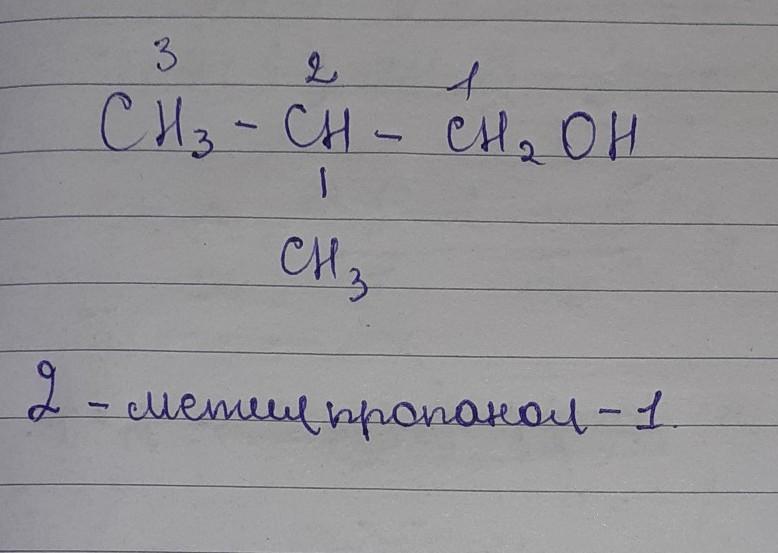 3 2 1
CH₃ - CH - CH₂ OH
|
CH₃
2 - метилпропанол - 1.